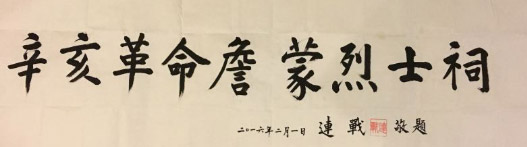 辛亥革命詹蒙烈士祠
二〇一六年二月一日 連戰 敬題